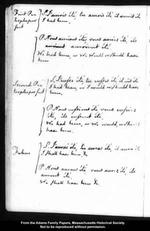 First Per
J'aurois été, tu aurois été, il auroit été
I had been,
P. Nous aurions été vous auriez été ils
auroient été
We had been, or We should have
been,
Second Per
J'eusse été, tu eusses été, il eut été
I had been, or I would or should have
been,
P. Nous eussions été vous eussiez
été, ils eussent été
We had been, or We would, or should
have been,
Future
J'aurai été, tu auras été, il aura été
I shall have been &c
P. Nous aurons été vous aurez été, ils
auront été
We shall have been &c
From the Adams Family Papers, Massachusetts Historical Society
Not to be reproduced without permission.